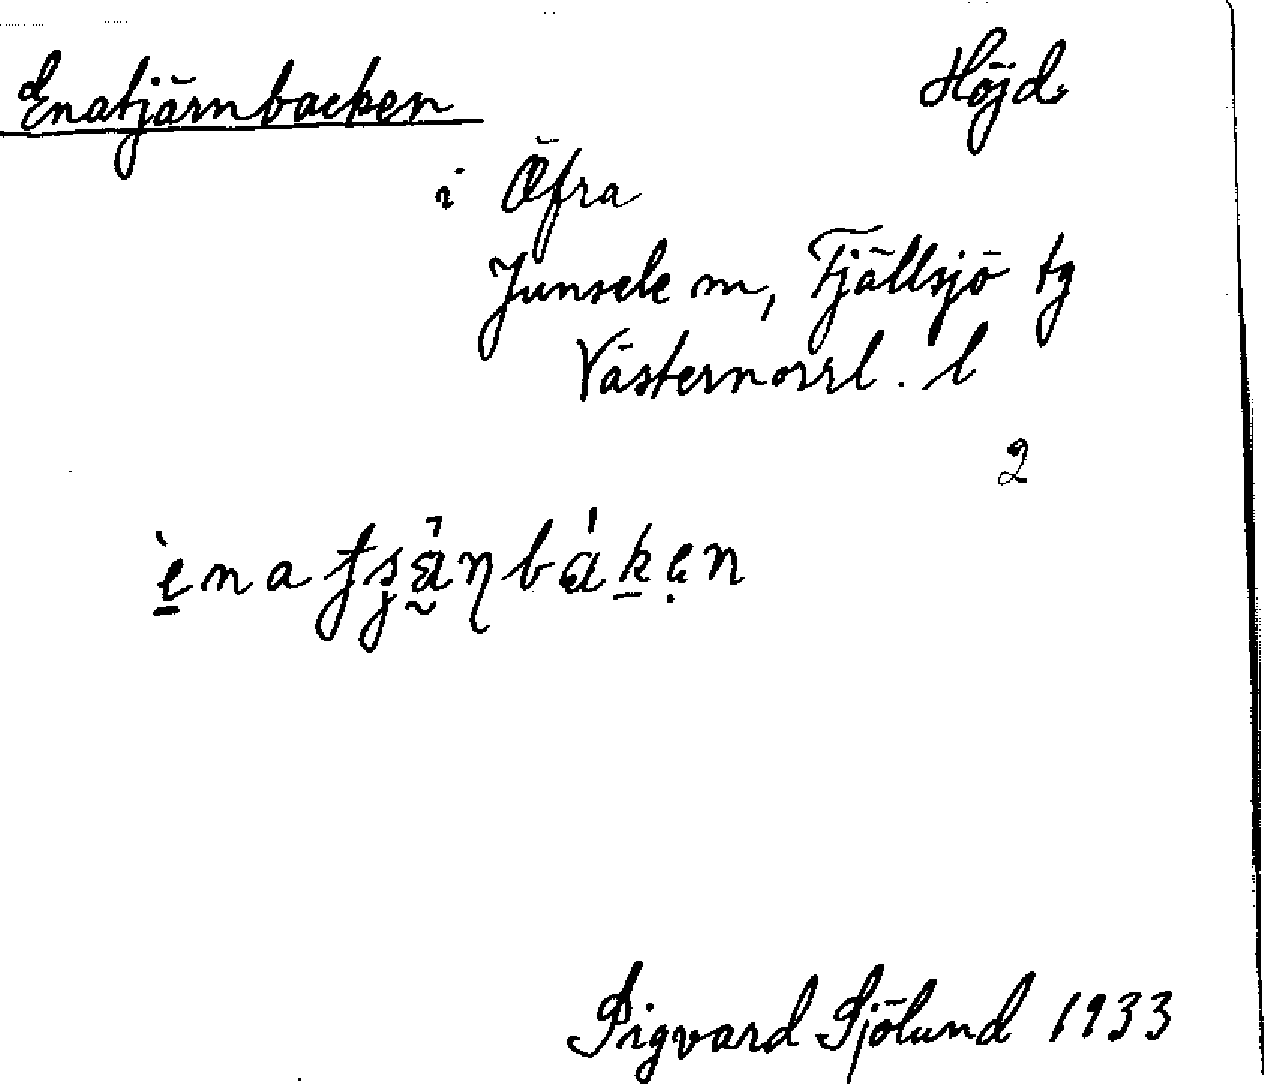 Enatjärnbacken Höjd
i Öfra
Junsele m, Fjällsjö tg
Västernorrl. l
2
Sigvard Sjölund 1933